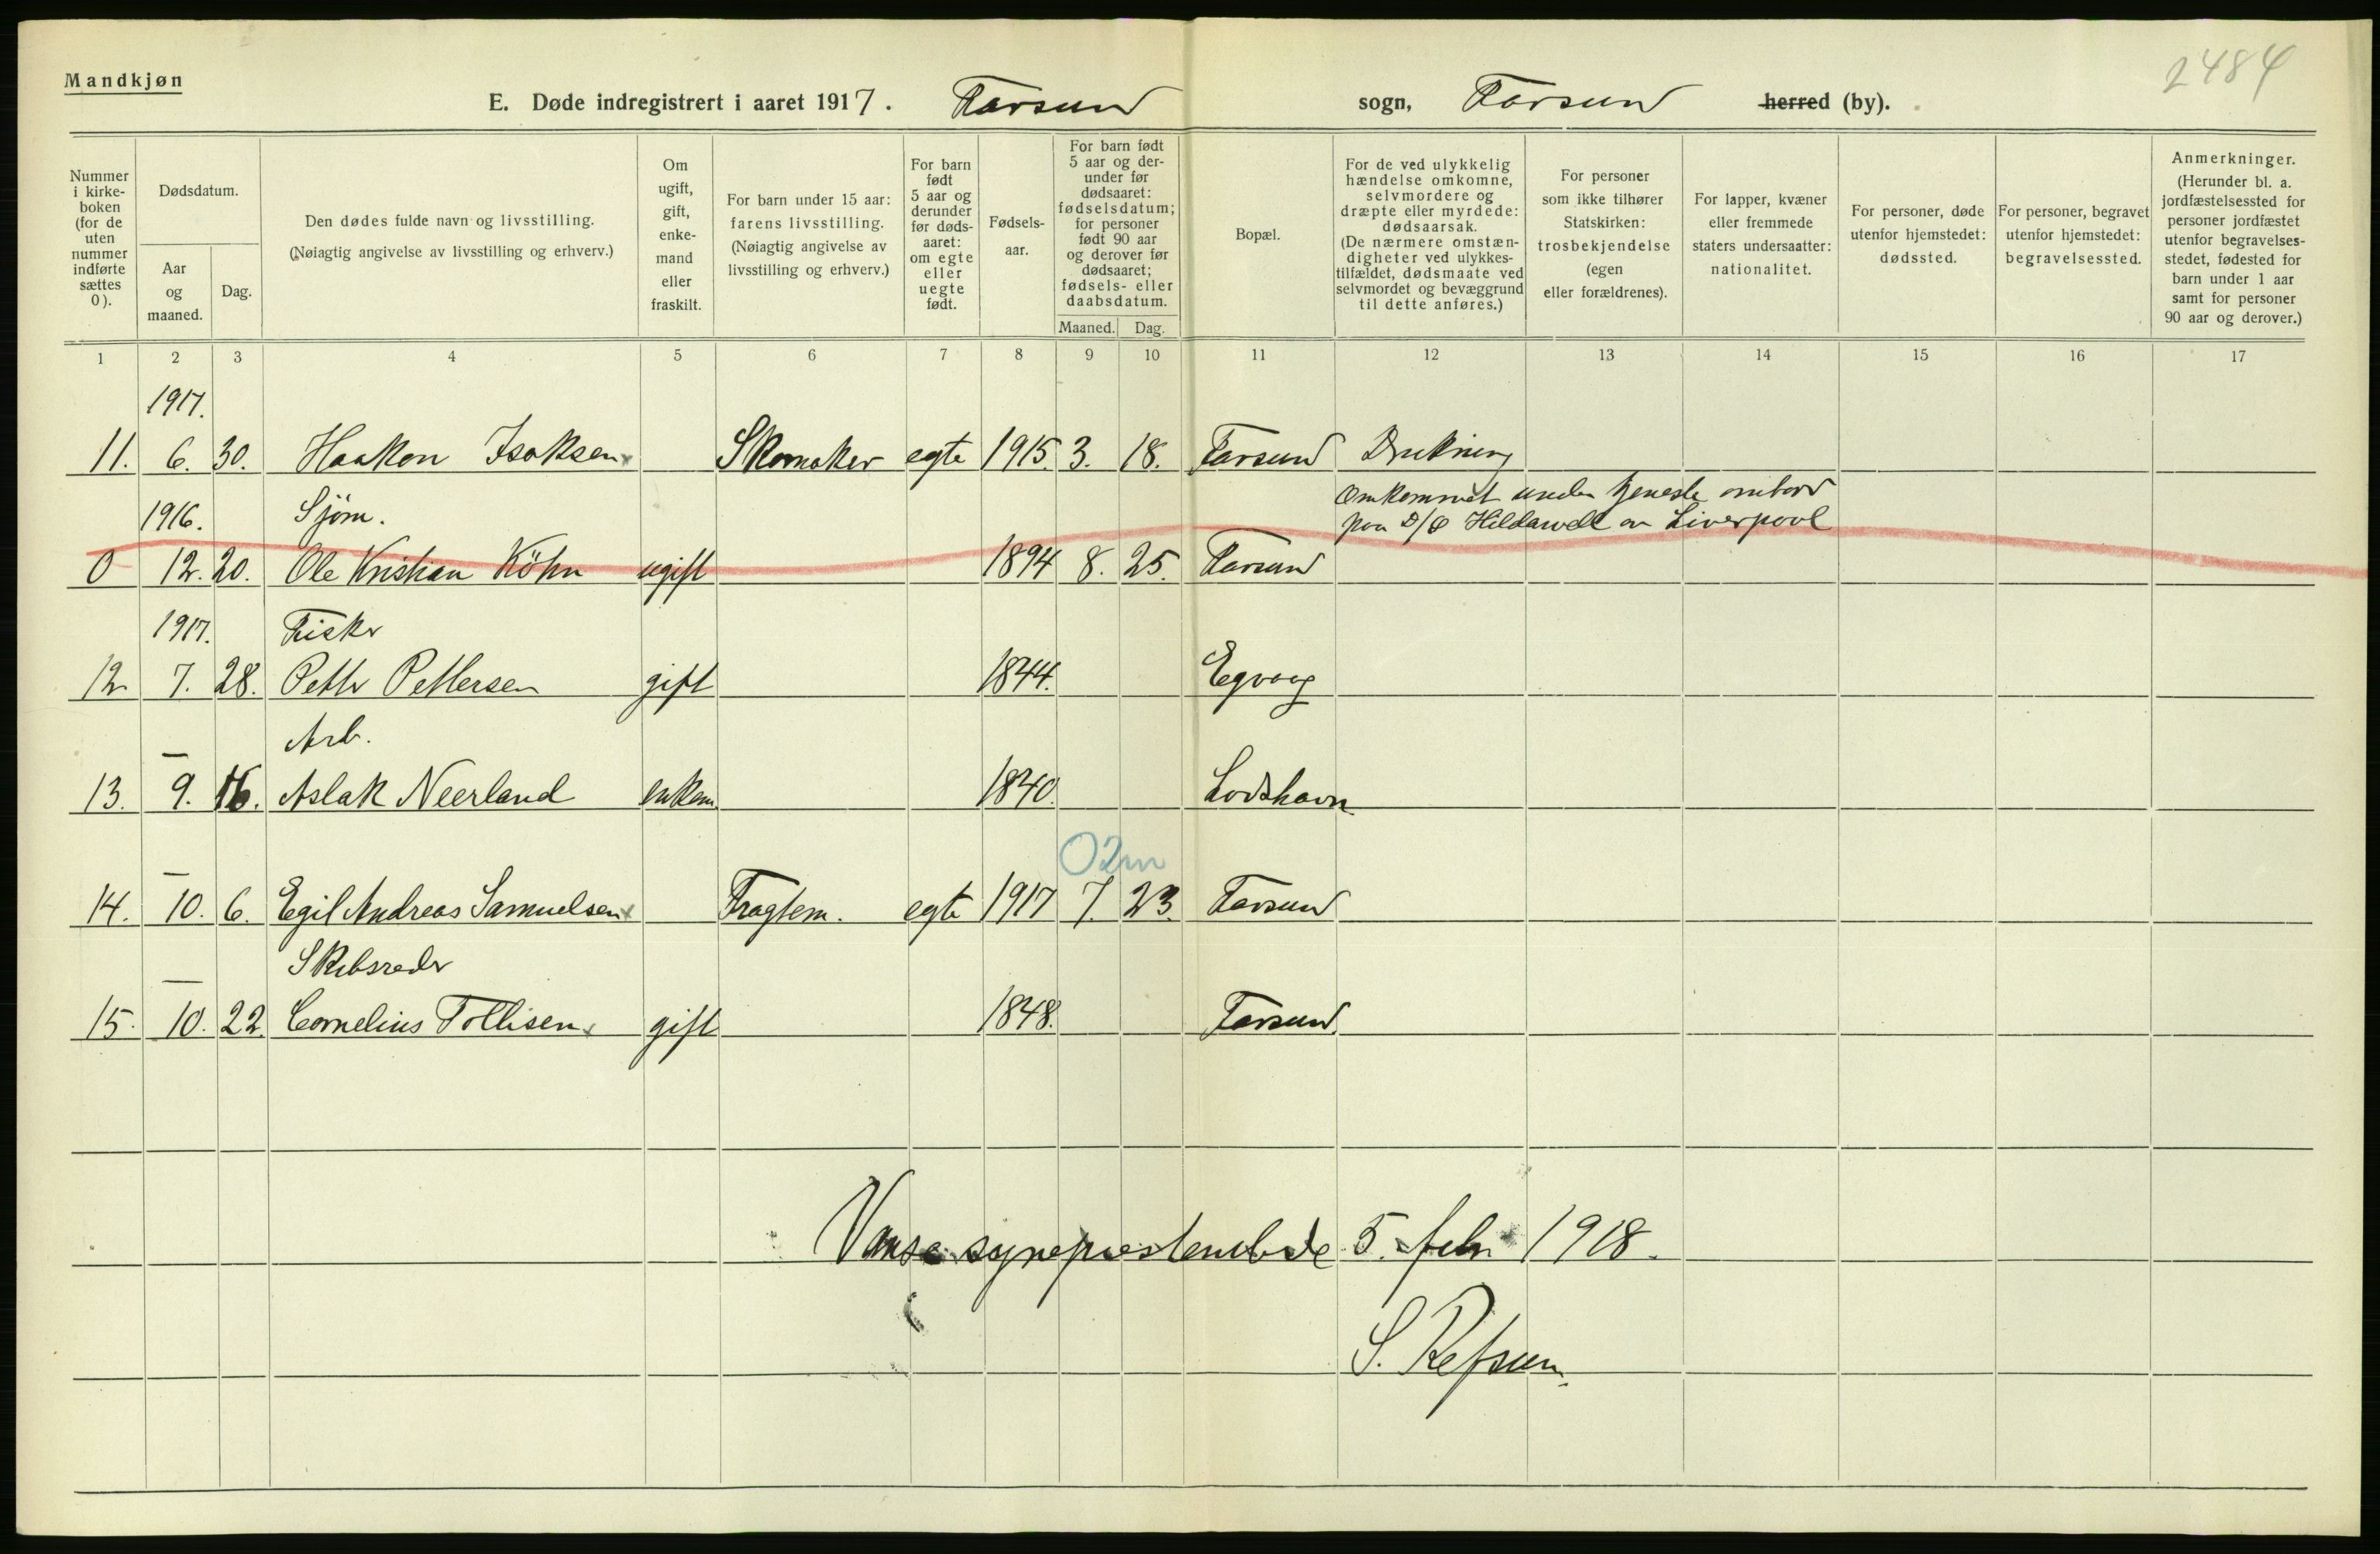 Mandkjøn
2484
E. Døde indregistrert i aaret 1917. Farsund sogn, Farsund herred (by).
Nummer i kirkeboken (for de uten nummer indførte sættes 0).
Dødsdatum.
Aar og maaned.
Dag.
Den dødes fulde navn og livsstilling.
(Nøiagtig angivelse av livsstilling og erhverv.)
Om ugift, gift, enkemand eller fraskilt.
For barn under 15 aar: farens livsstilling.
(Nøiagtig angivelse av livsstilling og erhverv.)
For barn født 5 aar og derunder før dødsaaret: om egte eller uegte født.
Fødselsaar.
For barn født 5 aar og derunder før dødsaaret: fødselsdatum; for personer født 90 aar og derover før dødsaaret; fødsels- eller daabsdatum.
Maaned. Dag.
Bopæl.
For de ved ulykkelig hændelse omkomne, selvmordere og dræpte eller myrdede: dødsaarsak.
(De nærmere omstændigheter ved ulykkestilfældet, dødsmaate ved selvmordet og bevæggrund til dette anføres.)
For personer som ikke tilhører Statskirken: trosbekjendelse (egen eller forældrenes).
For lapper, kvæner eller fremmede staters undersaatter: nationalitet.
For personer, døde utenfor hjemstedet: dødssted.
For personer, begravet utenfor hjemstedet: begravelsessted.
Anmerkninger.
(Herunder bl. a. jordfæstelsessted for personer jordfæstet utenfor begravelsesstedet, fødested for barn under 1 aar samt for personer 90 aar og derover.)
1 2 3 4 5 6 7 8 9 10 11 12 13 14 15 16 17
1917.
11. 6. 30. Haakon Isaksen Skomaker egte 1915. 3. 18. Farsund Drukning
1916. Sjöm. Omkommet under tjeneste ombord
paa D/S Hildawell av Liverpool
0 12. 20. Ole Kristian Köhn ugift 1894 8. 25. Farsund
1917. Fisker
12 7. 28. Petter Pettersen gift 1844. Egvaag
— Arb.
13. 9. 16. Aslak Neerland enkem. 1840. Lodshavn
02m
14. 10. 6. Egil Andreas Samuelsen Fragtem. egte 1917 7. 23. Farsund
— Skibsreder
15. 10. 22. Cornelius Tollisen gift 1848. Farsund
Vanse sogneprestembede 5. febr 1918.
S. Refsum